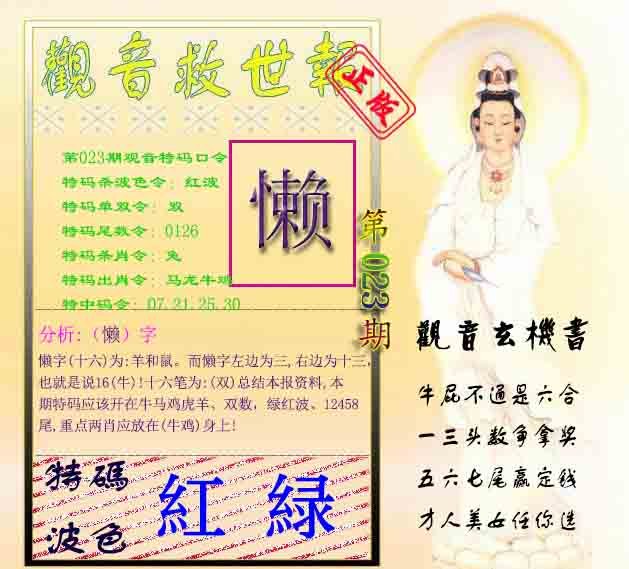 觀音救世報
正版
第023期观音特码口令
特码杀波色令:红波
特码单双令:双
特码尾数令:0126
特码杀肖令:兔
特码出肖令:马龙牛鸡
特中码令:07.21.25.30
懒
第023期
分析:(懒)字
懒字(十六)为:羊和鼠。而懒字左边为三,右边为十三,
也就是说16(牛)!十六笔为:(双)总结本报资料,本
期特码应该开在牛马鸡虎羊、双数,绿红波、12458
尾,重点两肖应放在(牛鸡)身上!
特碼
波色
紅緑
觀音玄機書
牛屁不通是六合
一三头数争拿奖
五六七尾赢定钱
才人美女任你选